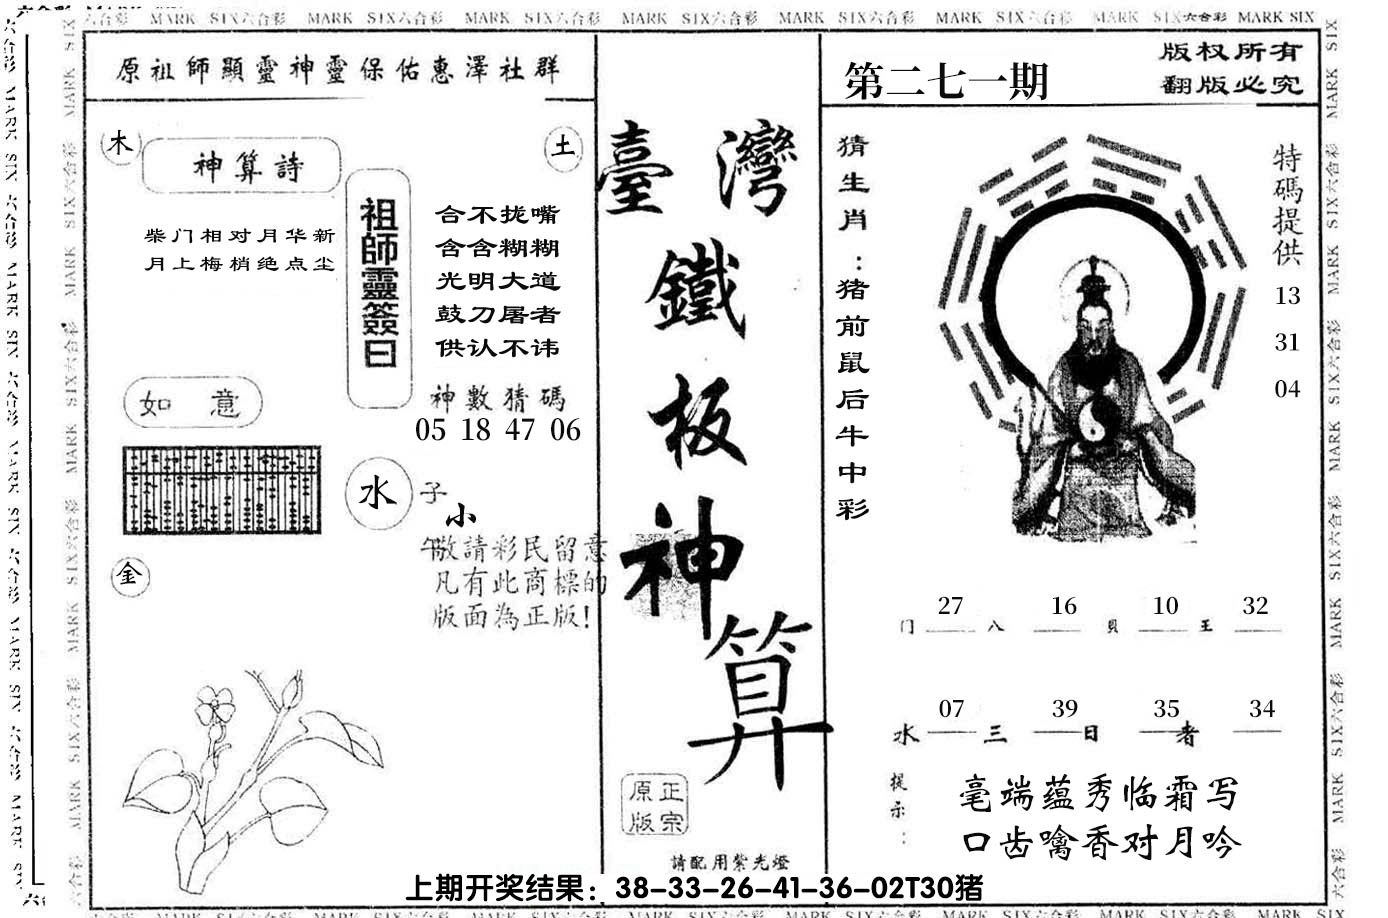 六合彩 MARK SIX六合彩 MARK SIX六合彩 MARK SIX六合彩 MARK SIX六合彩 MARK SIX六合彩 MARK SIX六合彩 MARK SIX六合彩 MARK SIX
原祖師顯靈神靈保佑惠澤社群
木
土
神算詩
柴门相对月华新
月上梅梢绝点尘
祖師靈簽曰
合不拢嘴
含含糊糊
光明大道
鼓刀屠者
供认不讳
神數猜碼
05 18 47 06
如 意
水
子
小
午
金
敬請彩民留意
凡有此商標的
版面為正版!
臺灣
鐵
板
神
算
正宗
原版
請配用紫光燈
第二七一期
版权所有
翻版必究
猜生肖：猪前鼠后牛中彩
特碼提供
13
31
04
门 27 八 16 貝 10 王 32
水 07 三 39 日 35 者 34
提示：
毫端蕴秀临霜写
口齿噙香对月吟
上期开奖结果：38-33-26-41-36-02T30猪